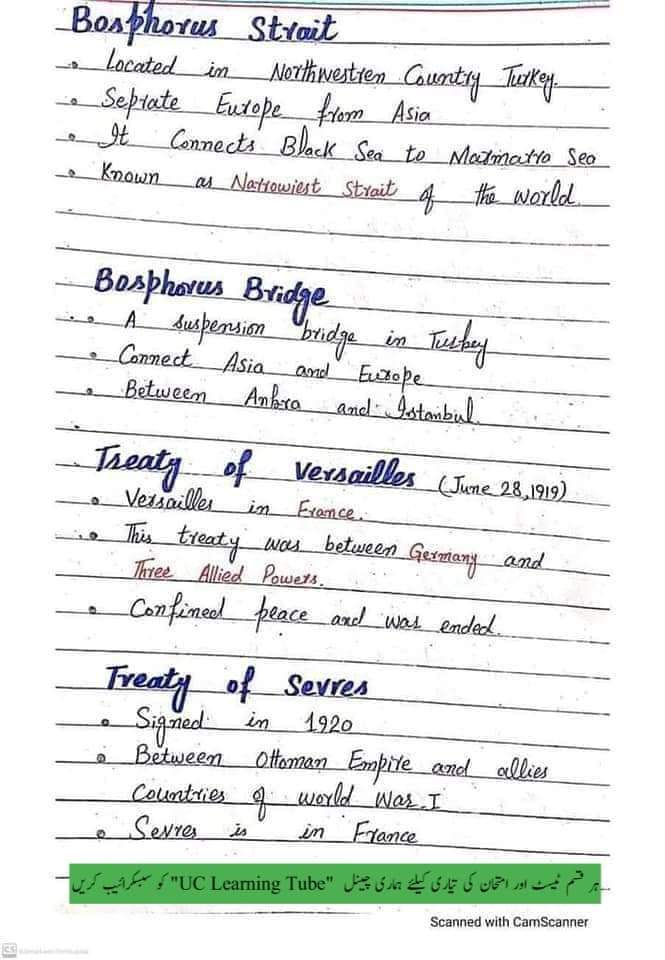 Bosphorus Strait
• Located in Northwestren Country Turkey.
• Seprate Europe from Asia
• It Connects Black Sea to Marmarra Sea
• Known as Narrowiest Strait of the world
Bosphorus Bridge
• A suspension bridge in Turkey
• Connect Asia and Europe
• Between Ankra and Istanbul.
Treaty of Versailles (June 28,1919)
• Versailles in France.
• This treaty was between Germany and
Three Allied Powers.
• Confined peace and was ended.
Treaty of Sevres
• Signed in 1920
• Between Ottoman Empire and allies
Countries of world War.I
• Sevres is in France
ہر قسم ٹیسٹ اور امتحان کی تیاری کیلئے ہماری چینل "UC Learning Tube" کو سبسکرائیب کریں
Scanned with CamScanner
CS